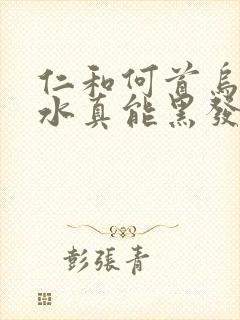 仁和何首烏
水真能黑發
彭張青